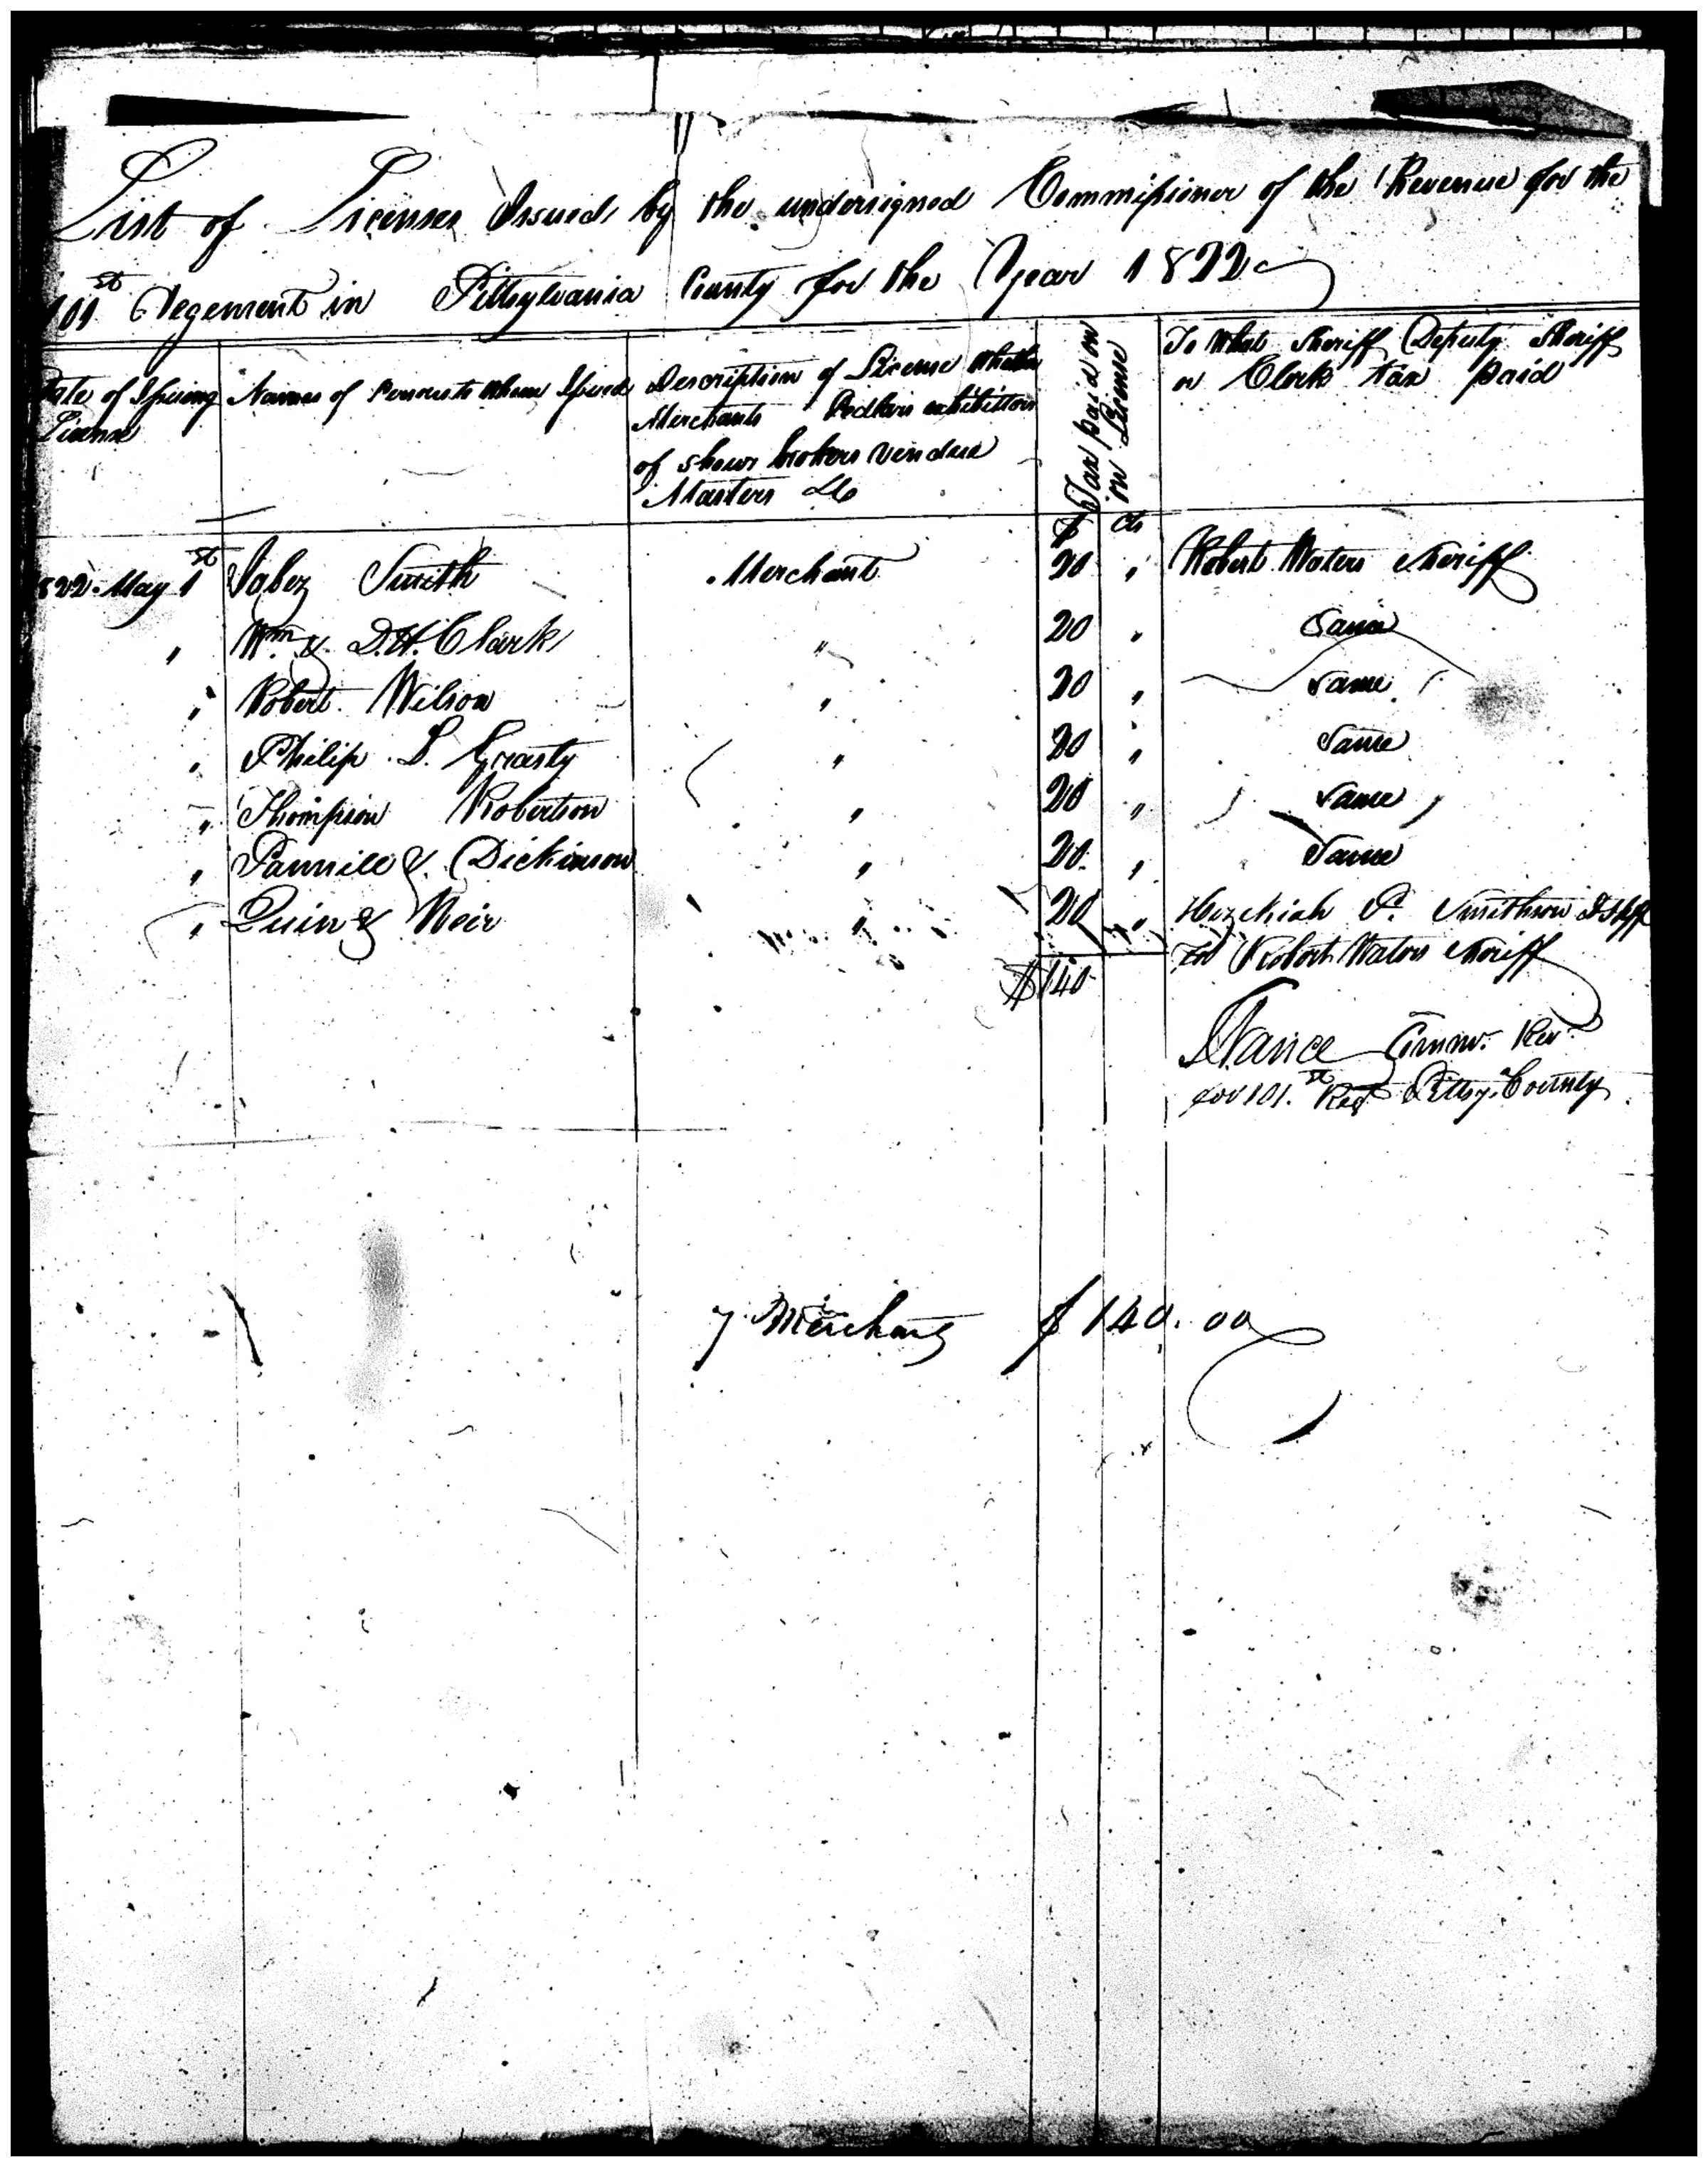 List of Licenses Issued by the undersigned Commissioner of the Revenue for the
101st Regement in Pittsylvania County for the Year 1822
Date of Issuing License
Names of Persons to Whom Issued
Description of License Whether
Merchants Pedlars exhibitors
of shows brokers vendue
Masters &c
Tax paid on
on License
To What Sheriff Deputy Sheriff
or Clerk tax paid
$ cts
1822. May 1st Jabez Smith Merchant 20 " Robert Waters Sheriff
" Wm & D.H. Clark " 20 " Same
" Robert Wilson " 20 " Same
" Philip L. Grasty " 20 " Same
" Thompson Robertson " 20 " Same
" Pannill & Dickinson " 20 " Same
" Quin & Weir " 20 " Hezekiah P. Smithson D Shff
for Robert Waters Sheriff
$140
Nance Commr. Rev.
for 101.st Regt Pittsy. County
7 Merchants $140.00